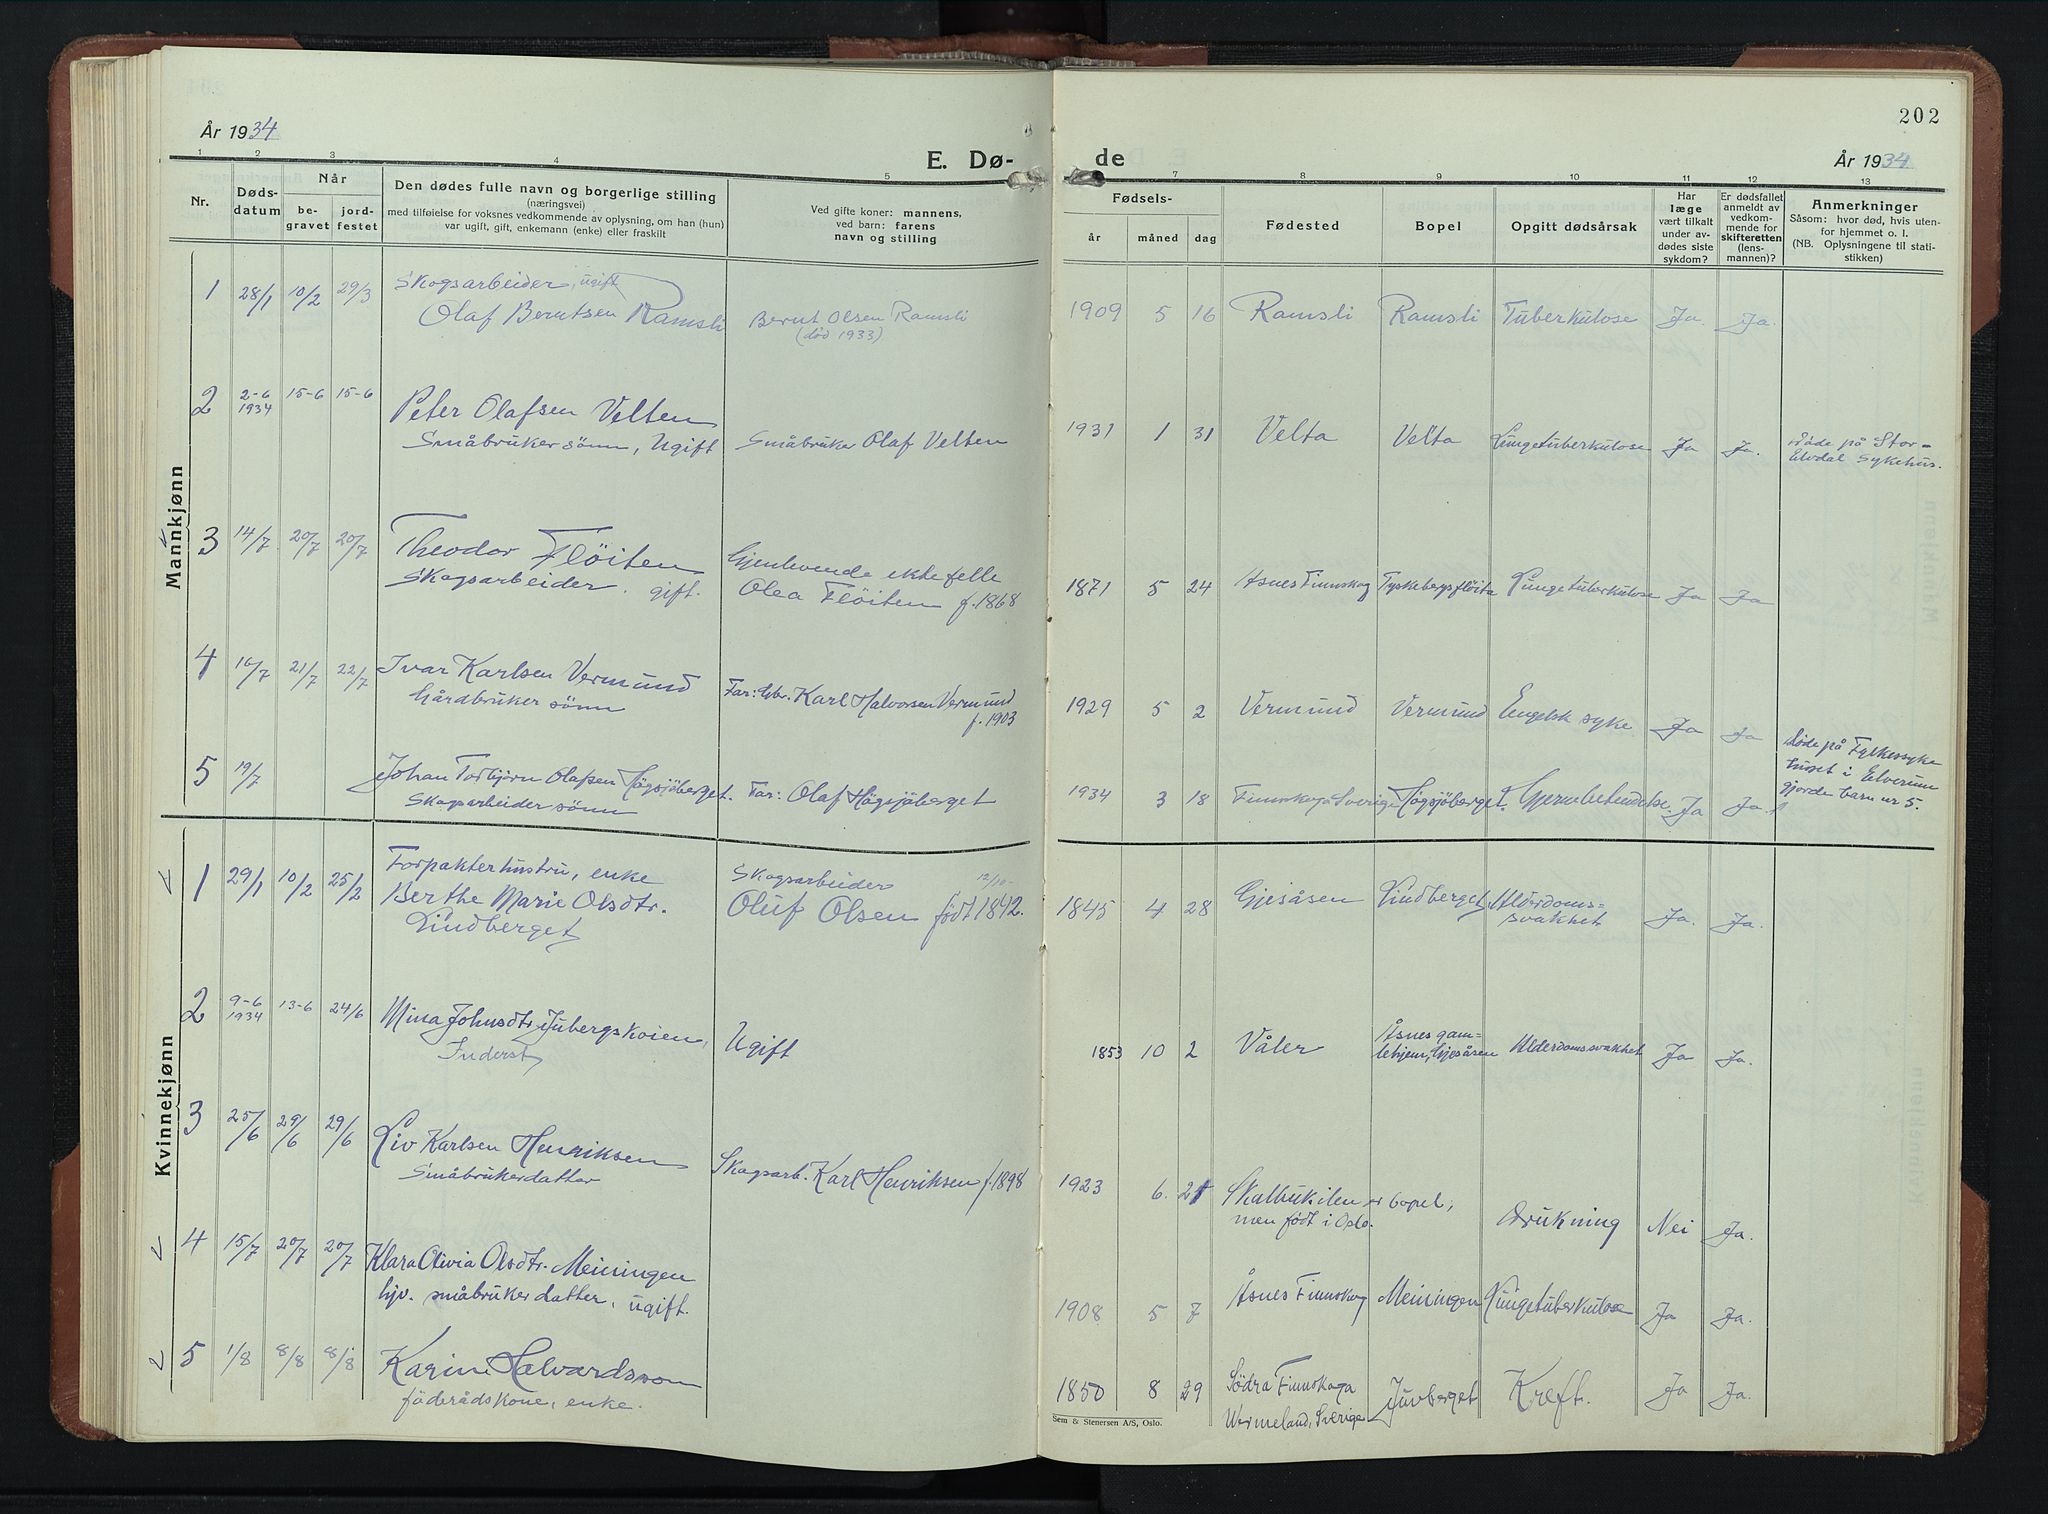 202
År 1934
År 1934
E. Dø-
de
1 2 3 4 5
7 8 9 10 11 12 13
Nr.
Døds-
datum
Når
be-
gravet
jord-
festet
Den dødes fulle navn og borgerlige stilling
(næringsvei)
med tilføielse for voksnes vedkommende av oplysning, om han (hun)
var ugift, gift, enkemann (enke) eller fraskilt
Ved gifte koner: mannens,
ved barn: farens
navn og stilling
Fødsels-
år måned dag
Fødested
Bopel
Opgitt dødsårsak
Har
læge
vært tilkalt
under av-
dødes siste
sykdom?
Er dødsfallet
anmeldt av
vedkom-
mende for
skifteretten
(lens-
mannen)?
Anmerkninger
Såsom: hvor død, hvis uten-
for hjemmet o. l.
(NB. Oplysningene til stati-
stikken)
Mannkjønn
1 28/1 10/2 29/3 Skogsarbeider, ugift
Olaf Berntsen Ramsli
Bernt Olsen Ramsli
(død 1933)
1909 5 16 Ramsli Ramsli Tuberkulose Ja Ja.
2 2-6 1934 15-6 15-6 Peter Olafsen Velten
Småbrukersønn, Ugift
Småbruker Olaf Velten
1931 1 31 Velta Velta Lungetuberkulose Ja Ja.
Døde på Stor-
Elvdal Sykehus.
3 14/7 20/7 20/7 Theodor Flöiten
Skogsarbeider. gift.
Gjenlevende ektefelle
Olea Flöiten f. 1868
1871 5 24 Åsnes Finnskog Tyskebergsflöita Lungetuberkulose Ja Ja
4 16/7 21/7 22/7 Ivar Karlsen Vermund
Gårdbruker sönn
Far: Gbr. Karl Halvorsen Vermund
f. 1903
1929 5 2 Vermund Vermund Engelsk syke Ja Ja
5 19/7 Johan Torbjørn Olafsen Högsjöberget.
Skogsarbeider sönn
Far: Olaf Högsjöberget
1934 3 18 Finnskoga Sverige Högsjöberget. Hjernebetendelse. Ja Ja.
Døde på Fylkessyke
huset i Elverum
gjorde barn nr 5.
Kvinnekjønn
1 29/1 10/2 25/2 Forpakterhustru, enke
Berthe Marie Olsdtr.
Lindberget
Skogsarbeider
Oluf Olsen født 12/10- 1842.
1845 4 28 Gjesåsen Lindberget Alderdoms-
svakhet
Ja. Ja.
2 9-6 1934 13-6 24/6 Mina Johnsdtr. Jubergskoien,
Inderst
Ugift
1853 10 2 Våler Åsnes gam-
lehjem, Gjesåsen Alderdomssvakhet Ja Ja.
3 25/6 29/6 29/6 Liv Karlsen Henriksen
Småbrukerdatter
Skogsarb. Karl Henriksen f. 1898
1923 6. Skalbukilen er bopel,
men født i Oslo.
Drukning Nei Ja.
4 15/7 20/7 20/7 Klara Olivia Olsdtr. Meiningen
hjv. småbruker datter, ugift.
1908 5 7 Åsnes Finnskog Meiningen Lungetuberkulose Ja Ja.
5 1/8 8/8 8/8 Karin Halvardsson
föderådskone, enke.
1850 8 29 Södra Finnskoga
Wermeland, Sverige
Juvberget Kreft. Ja Ja.
Sem & Stenersen A/S, Oslo.